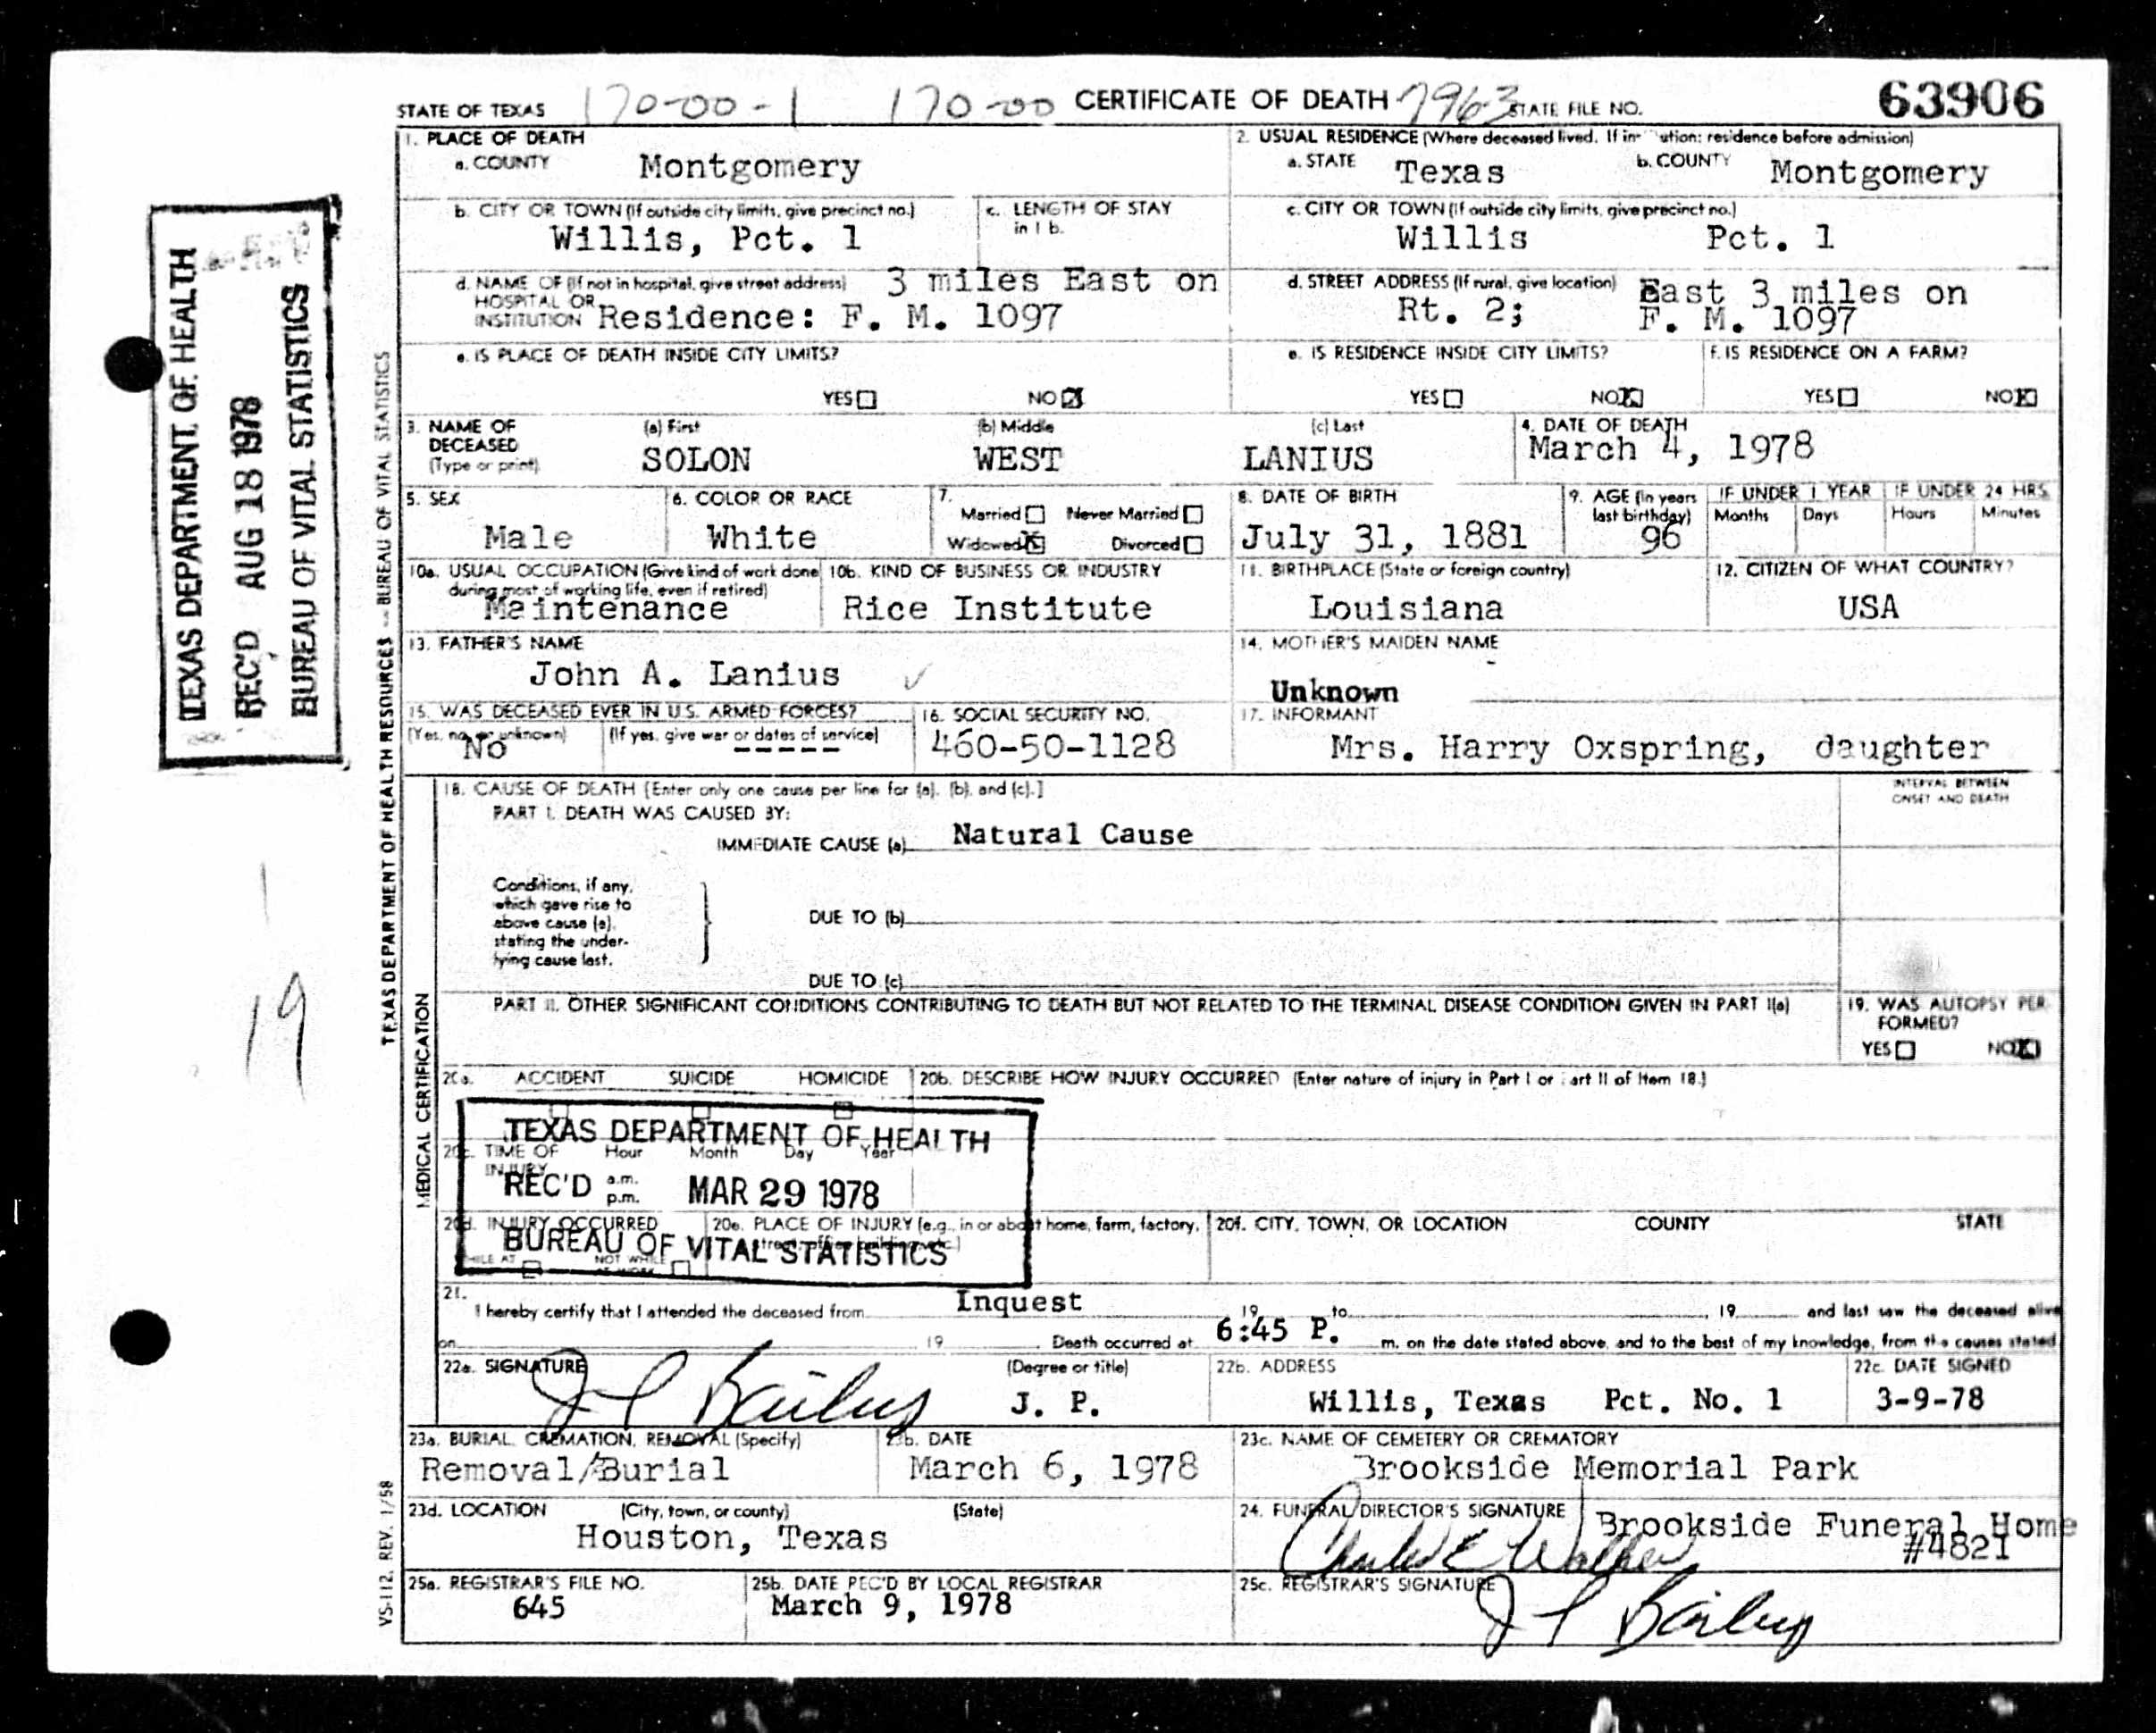 STATE OF TEXAS 170-00-1 170-00 CERTIFICATE OF DEATH 7963 STATE FILE NO. 63906
1. PLACE OF DEATH
a. COUNTY Montgomery
2. USUAL RESIDENCE (Where deceased lived. If in ution: residence before admission)
a. STATE Texas b. COUNTY Montgomery
b. CITY OR TOWN (If outside city limits, give precinct no.)
Willis, Pct. 1
c. LENGTH OF STAY
in 1 b.
c. CITY OR TOWN (If outside city limits, give precinct no.)
Willis Pct. 1
d. NAME OF (If not in hospital, give street address) 3 miles East on
HOSPITAL OR
INSTITUTION Residence: F. M. 1097
d. STREET ADDRESS (If rural, give location) East 3 miles on
Rt. 2; F. M. 1097
e. IS PLACE OF DEATH INSIDE CITY LIMITS?
YES NO X
e. IS RESIDENCE INSIDE CITY LIMITS?
YES NO X
f. IS RESIDENCE ON A FARM?
YES NO X
3. NAME OF
DECEASED
(Type or print)
(a) First (b) Middle (c) Last
SOLON WEST LANIUS
4. DATE OF DEATH
March 4, 1978
5. SEX
Male
6. COLOR OR RACE
White
7.
Married Never Married
Widowed X Divorced
8. DATE OF BIRTH
July 31, 1881
9. AGE (in years
last birthday)
96
IF UNDER 1 YEAR
Months Days
IF UNDER 24 HRS.
Hours Minutes
10a. USUAL OCCUPATION (Give kind of work done
during most of working life, even if retired)
Maintenance
10b. KIND OF BUSINESS OR INDUSTRY
Rice Institute
11. BIRTHPLACE (State or foreign country)
Louisiana
12. CITIZEN OF WHAT COUNTRY?
USA
13. FATHER'S NAME
John A. Lanius ✓
14. MOTHER'S MAIDEN NAME
Unknown
15. WAS DECEASED EVER IN U.S. ARMED FORCES?
(Yes, no, or unknown) (If yes, give war or dates of service)
No -----
16. SOCIAL SECURITY NO.
460-50-1128
17. INFORMANT
Mrs. Harry Oxspring, daughter
18. CAUSE OF DEATH [Enter only one cause per line for (a), (b), and (c).]
INTERVAL BETWEEN
ONSET AND DEATH
PART I. DEATH WAS CAUSED BY:
IMMEDIATE CAUSE (a) Natural Cause
Conditions, if any,
which gave rise to
above cause (a),
stating the under-
lying cause last.
DUE TO (b)
DUE TO (c)
PART II. OTHER SIGNIFICANT CONDITIONS CONTRIBUTING TO DEATH BUT NOT RELATED TO THE TERMINAL DISEASE CONDITION GIVEN IN PART I(a)
19. WAS AUTOPSY PER
FORMED?
YES NO X
20a. ACCIDENT SUICIDE HOMICIDE
20b. DESCRIBE HOW INJURY OCCURRED (Enter nature of injury in Part I or art II of Item 18.)
TEXAS DEPARTMENT OF HEALTH
REC'D MAR 29 1978
BUREAU OF VITAL STATISTICS
20c. TIME OF
INJURY
Hour Month Day Year
a.m.
p.m.
20d. INJURY OCCURRED
WHILE AT NOT WHILE
AT WORK
20e. PLACE OF INJURY (e.g., in or about home, farm, factory,
street, office building, etc.)
20f. CITY, TOWN, OR LOCATION COUNTY STATE
21.
I hereby certify that I attended the deceased from Inquest 19 to 19 and last saw the deceased alive
on 19 Death occurred at 6:45 P. m. on the date stated above, and to the best of my knowledge, from the causes stated
22a. SIGNATURE (Degree or title)
J L Bailey J. P.
22b. ADDRESS
Willis, Texas Pct. No. 1
22c. DATE SIGNED
3-9-78
23a. BURIAL, CREMATION, REMOVAL (Specify)
Removal/Burial
23b. DATE
March 6, 1978
23c. NAME OF CEMETERY OR CREMATORY
Brookside Memorial Park
23d. LOCATION (City, town, or county) (State)
Houston, Texas
24. FUNERAL DIRECTOR'S SIGNATURE
Charles E Walker
Brookside Funeral Home
#4821
25a. REGISTRAR'S FILE NO.
645
25b. DATE REC'D BY LOCAL REGISTRAR
March 9, 1978
25c. REGISTRAR'S SIGNATURE
J L Bailey
MEDICAL CERTIFICATION
TEXAS DEPARTMENT OF HEALTH RESOURCES — BUREAU OF VITAL STATISTICS
VS-112, REV. 1/58
TEXAS DEPARTMENT OF HEALTH
REC'D AUG 18 1978
BUREAU OF VITAL STATISTICS
19